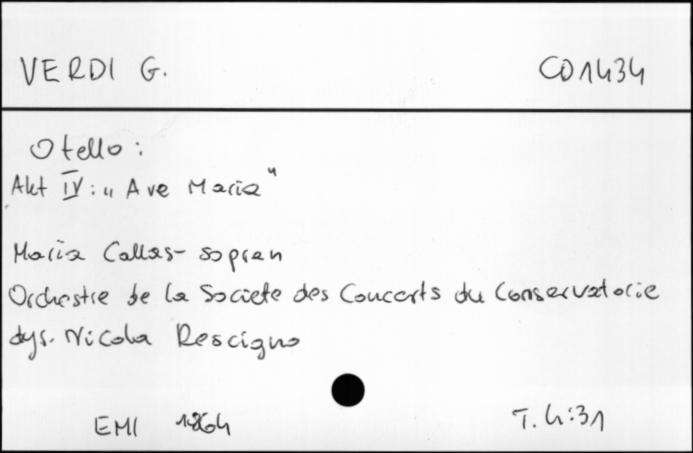 VERDI G. CD1434
Otello:
Akt IV: „Ave Maria"
Maria Callas - sopran
Orchestre de la Societe des Concerts du Conservatorie
dyr. Nicola Rescigno
EMI 1964 T. 4:31